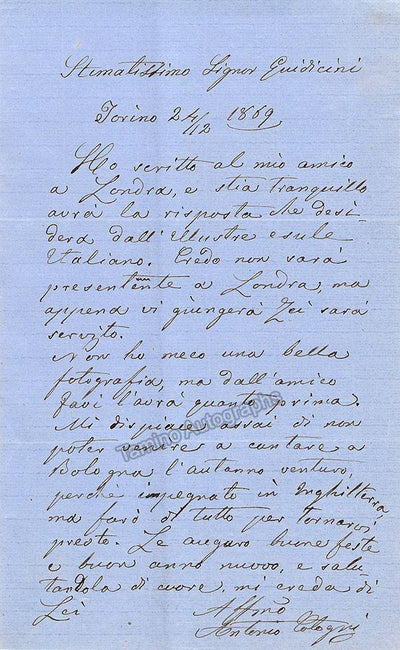 Stimatissimo Signor Guidicini
Torino 24/12 1869
Ho scritto al mio amico
a Londra, e stia tranquillo
avrà la risposta che desi-
dera dall'Illustre esule
Italiano. Credo non sarà
presentemte a Londra, ma
appena vi giungerà Lei sarà
servito.
Non ho meco una bella
fotografia, ma dall'amico
Favi l'avrà quanto prima.
Tamino Autographs
Mi dispiace assai di non
poter venire a cantare a
Bologna l'autunno venturo,
perchè impegnato in Inghilterra,
ma farò di tutto per tornarvi
presto. Le auguro buone feste
e buon anno nuovo, e salu-
tandola di cuore, mi creda di
Lei
Affmo
Antonio Cotogni